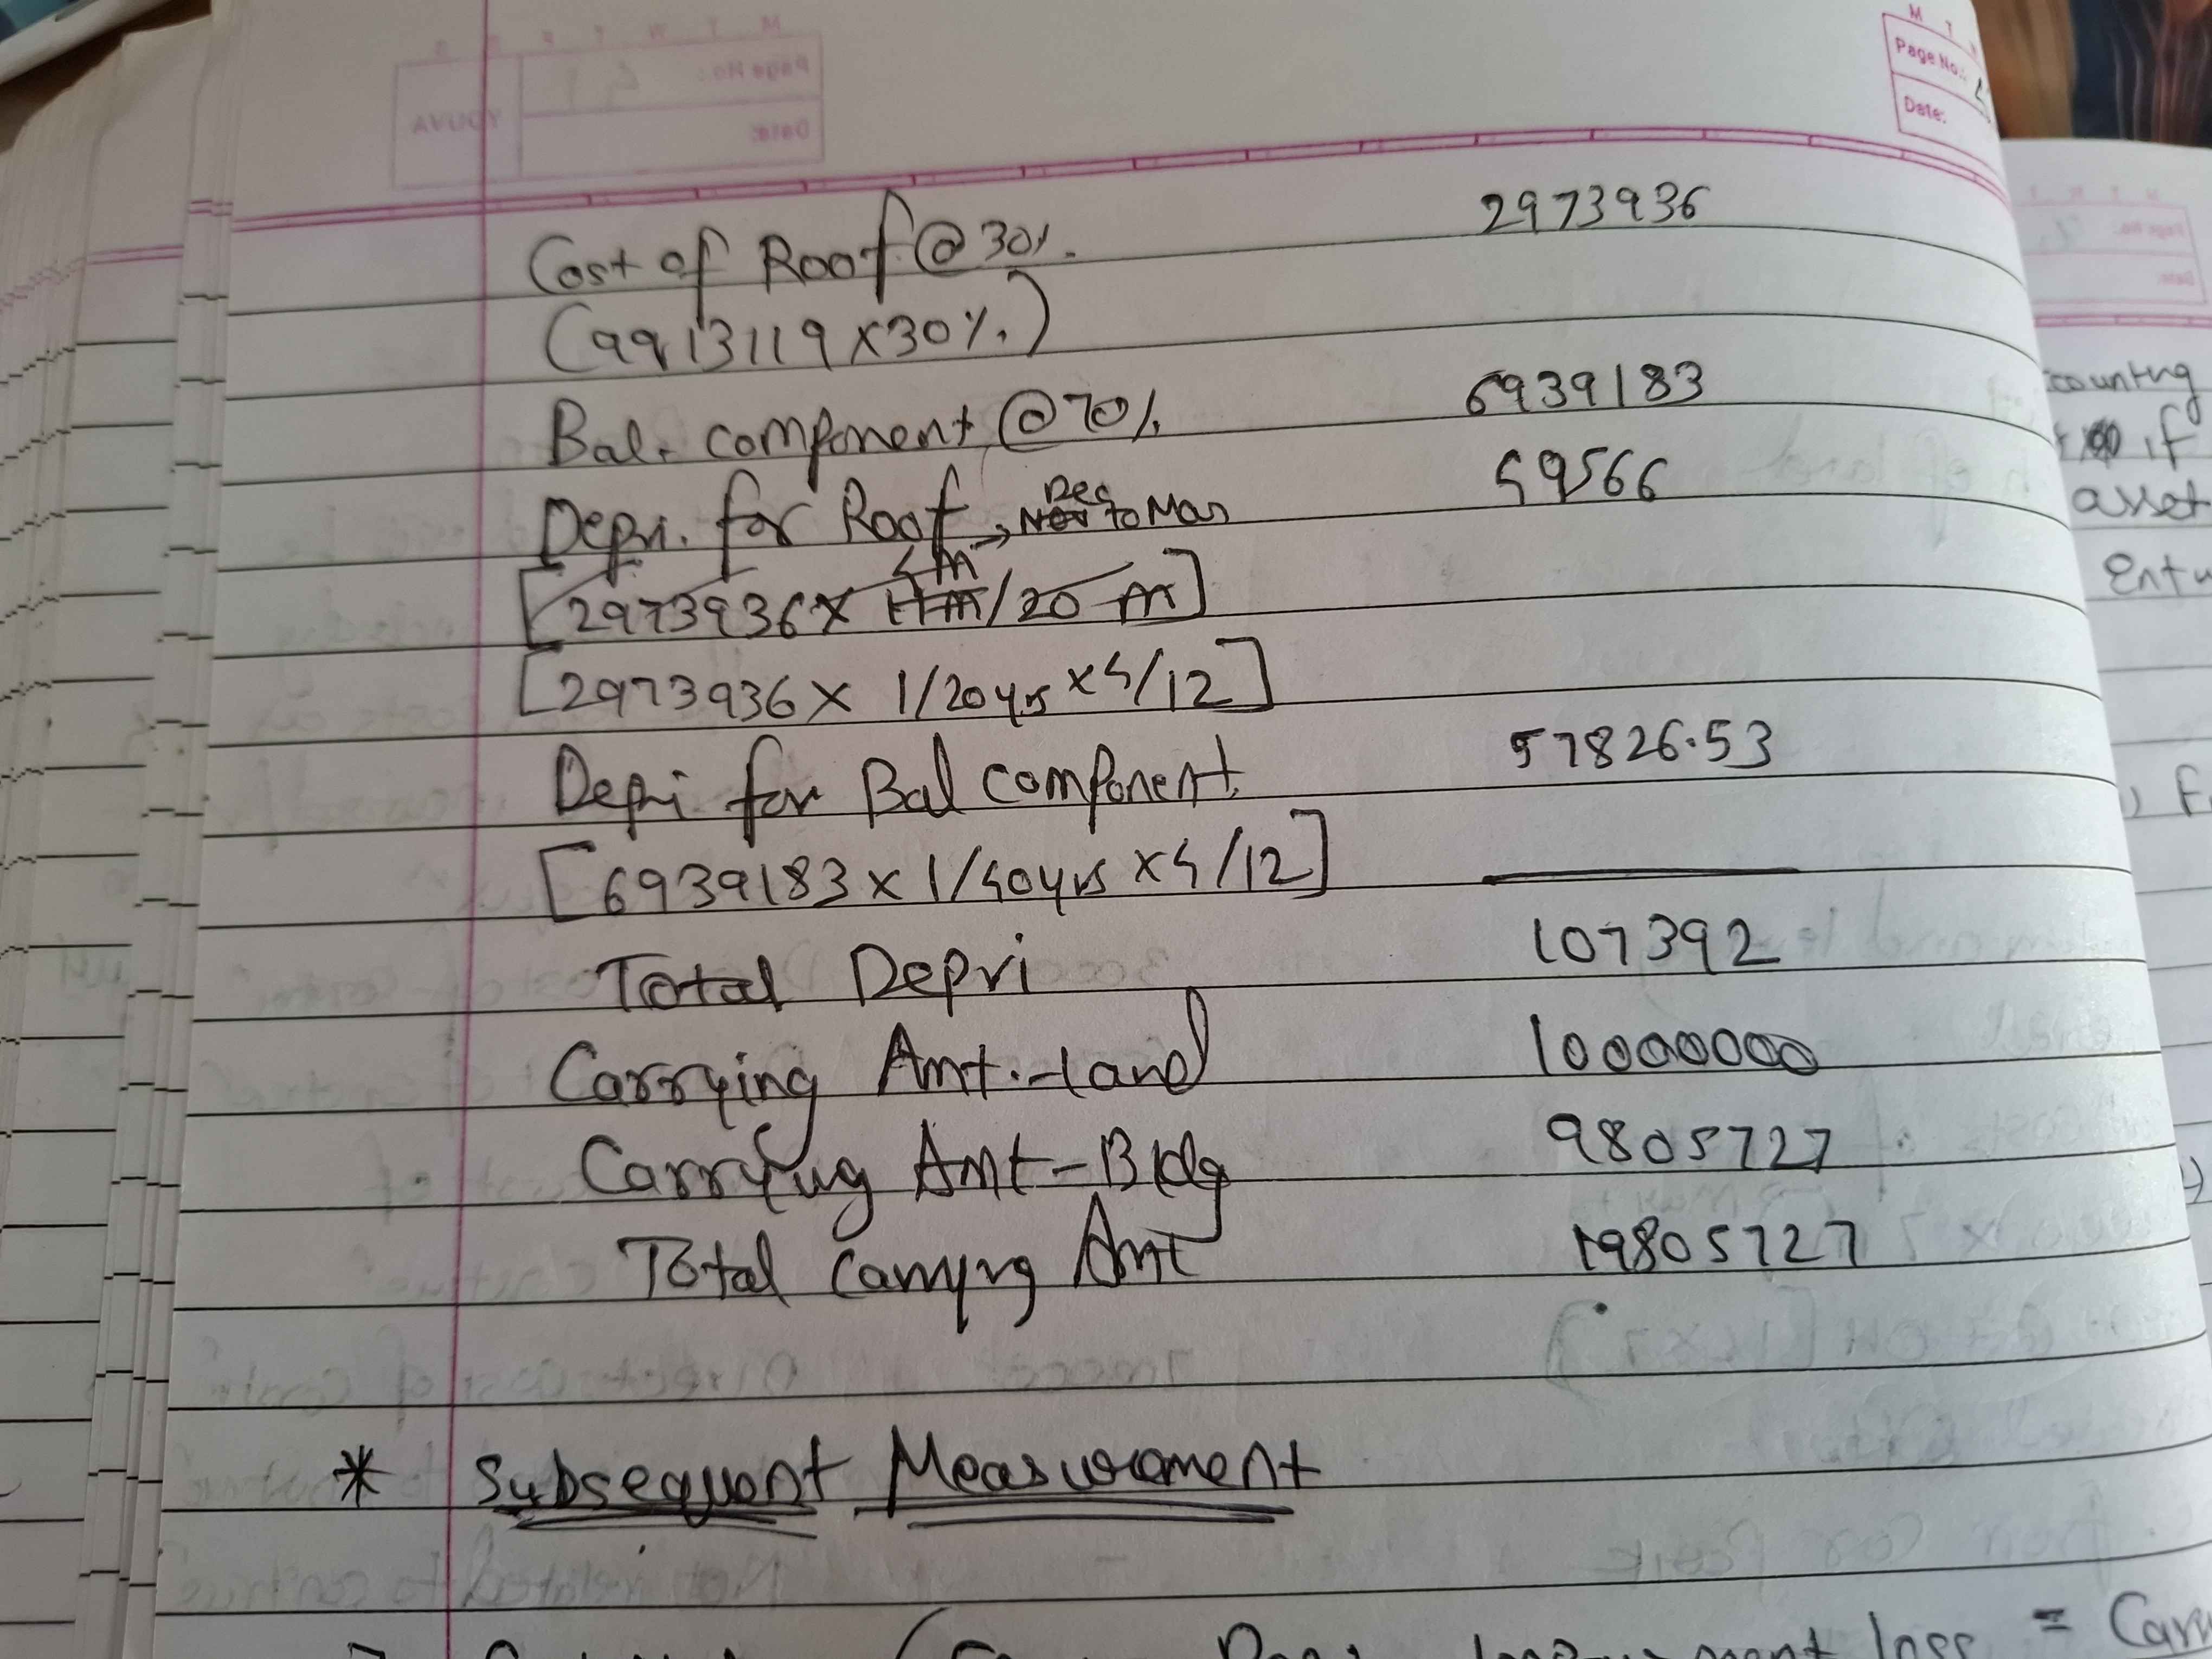 M T
Page No.:
Date:
Cost of Roof @ 30%. 2973936
(9913119 x 30%.)
Bal. component @ 70% 6939183
Depri. for Roof → Dec to Mar 49566
[2973936 x 4m / 20 m]
[2973936 x 1/20 yrs x 4/12]
Depri for Bal component 57826.53
[6939183 x 1/40 yrs x 4/12]
Total Depri 107392
Carrying Amt. - land 10000000
Carrying Amt - Bldg 9805727
Total Carrying Amt 19805727
* Subsequent Measurement
loss = Carr
counting
if
asset